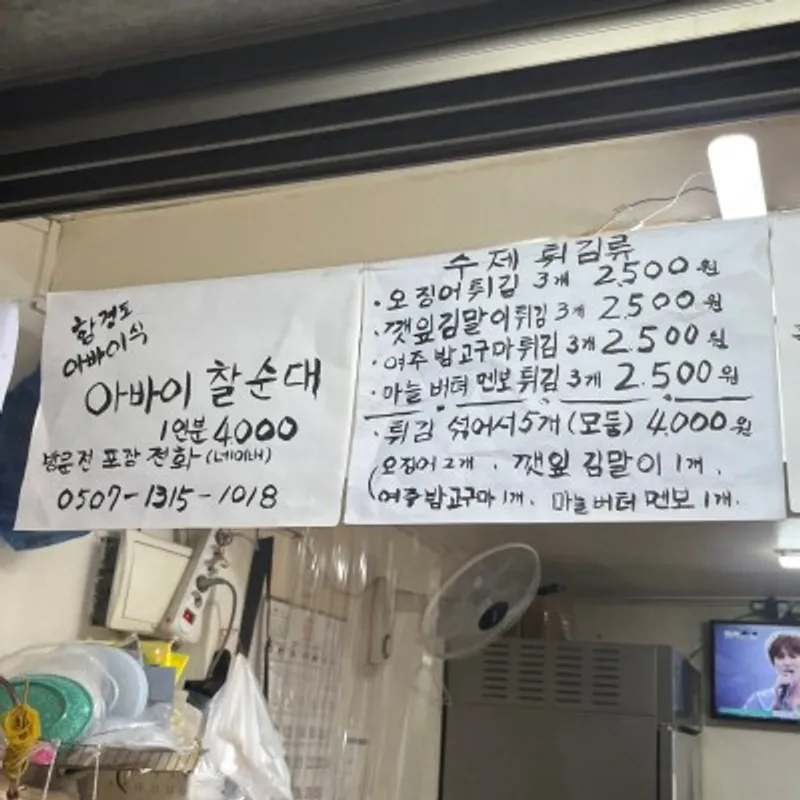 함경도
아바이식
아바이 찰순대
1인분 4.000
방문전 포장 전화 (네이버)
0507-1315-1018
수제 튀김류
· 오징어튀김 3개 2.500원
· 깻잎김말이튀김 3개 2.500원
· 여주 밤고구마튀김 3개 2.500원
· 마늘 버터 멘보튀김 3개 2.500원
· 튀김 섞어서5개 (모둠) 4.000원
(오징어 2개, 깻잎 김말이 1개,
여주 밤고구마 1개, 마늘버터 멘보 1개.